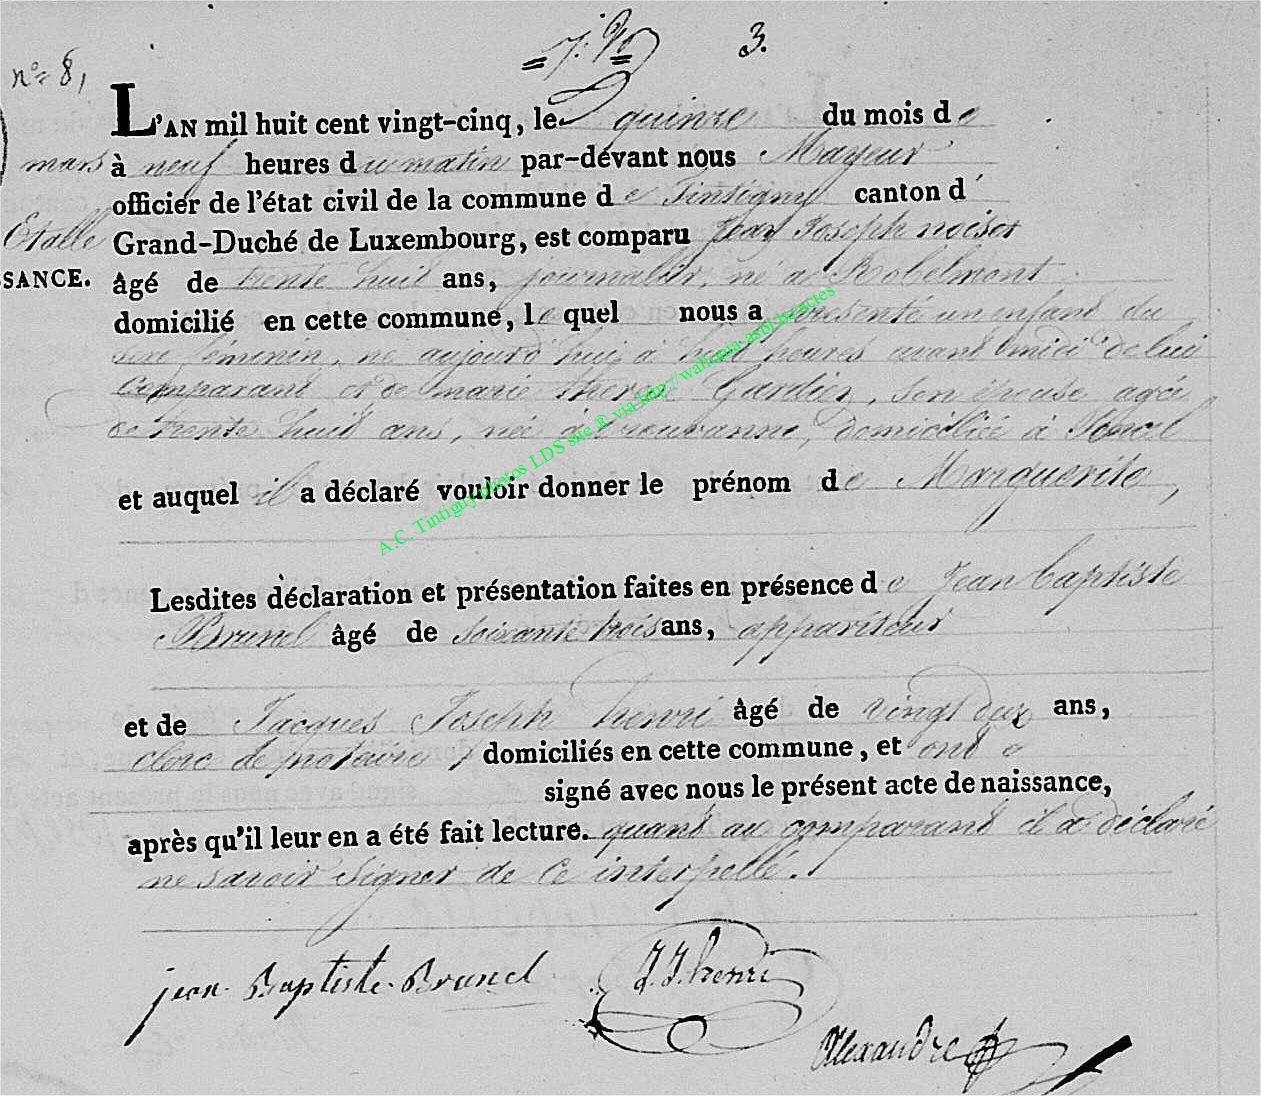 3.
n° 8,
L'AN mil huit cent vingt-cinq, le quinze du mois de
mars à neuf heures du matin par-dévant nous Mayeur
officier de l'état civil de la commune de Tintigny canton d'
Etalle Grand-Duché de Luxembourg, est comparu Jean Joseph noiset
SSANCE. âgé de trente huit ans, journalier, né à Robelmont
domicilié en cette commune, le quel nous a presenté un enfant du
sexe féminin, né aujourd'hui à huit heures avant midi de lui
comparant et de marie therese Gardier, son épouse agée
de trente huit ans, née à domiciliée à
et auquel il a déclaré vouloir donner le prénom de Marguerite,
A.C. Tintigny photos LDS site ® via http://wallonia-asbl.be/actes
Lesdites déclaration et présentation faites en présence de Jean baptiste
Brunel âgé de soixante trois ans, appariteur
et de Jacques Joseph henri âgé de vingt deux ans,
clerc de notaire domiciliés en cette commune, et ont
signé avec nous le présent acte de naissance,
après qu'il leur en a été fait lecture. quant au comparant il a déclaré
ne savoir signer de ce interpellé.
jean Baptiste Brunel J. J. henri
Alexandre